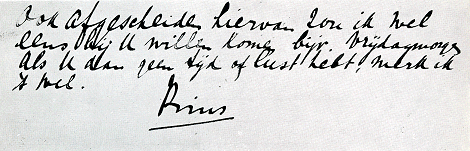 Ook afgescheiden hiervan zou ik wel
eens bij U willen komen bijv. Vrijdagmorgen
als U dan geen tijd of lust hebt, merk ik
't wel.
Prins